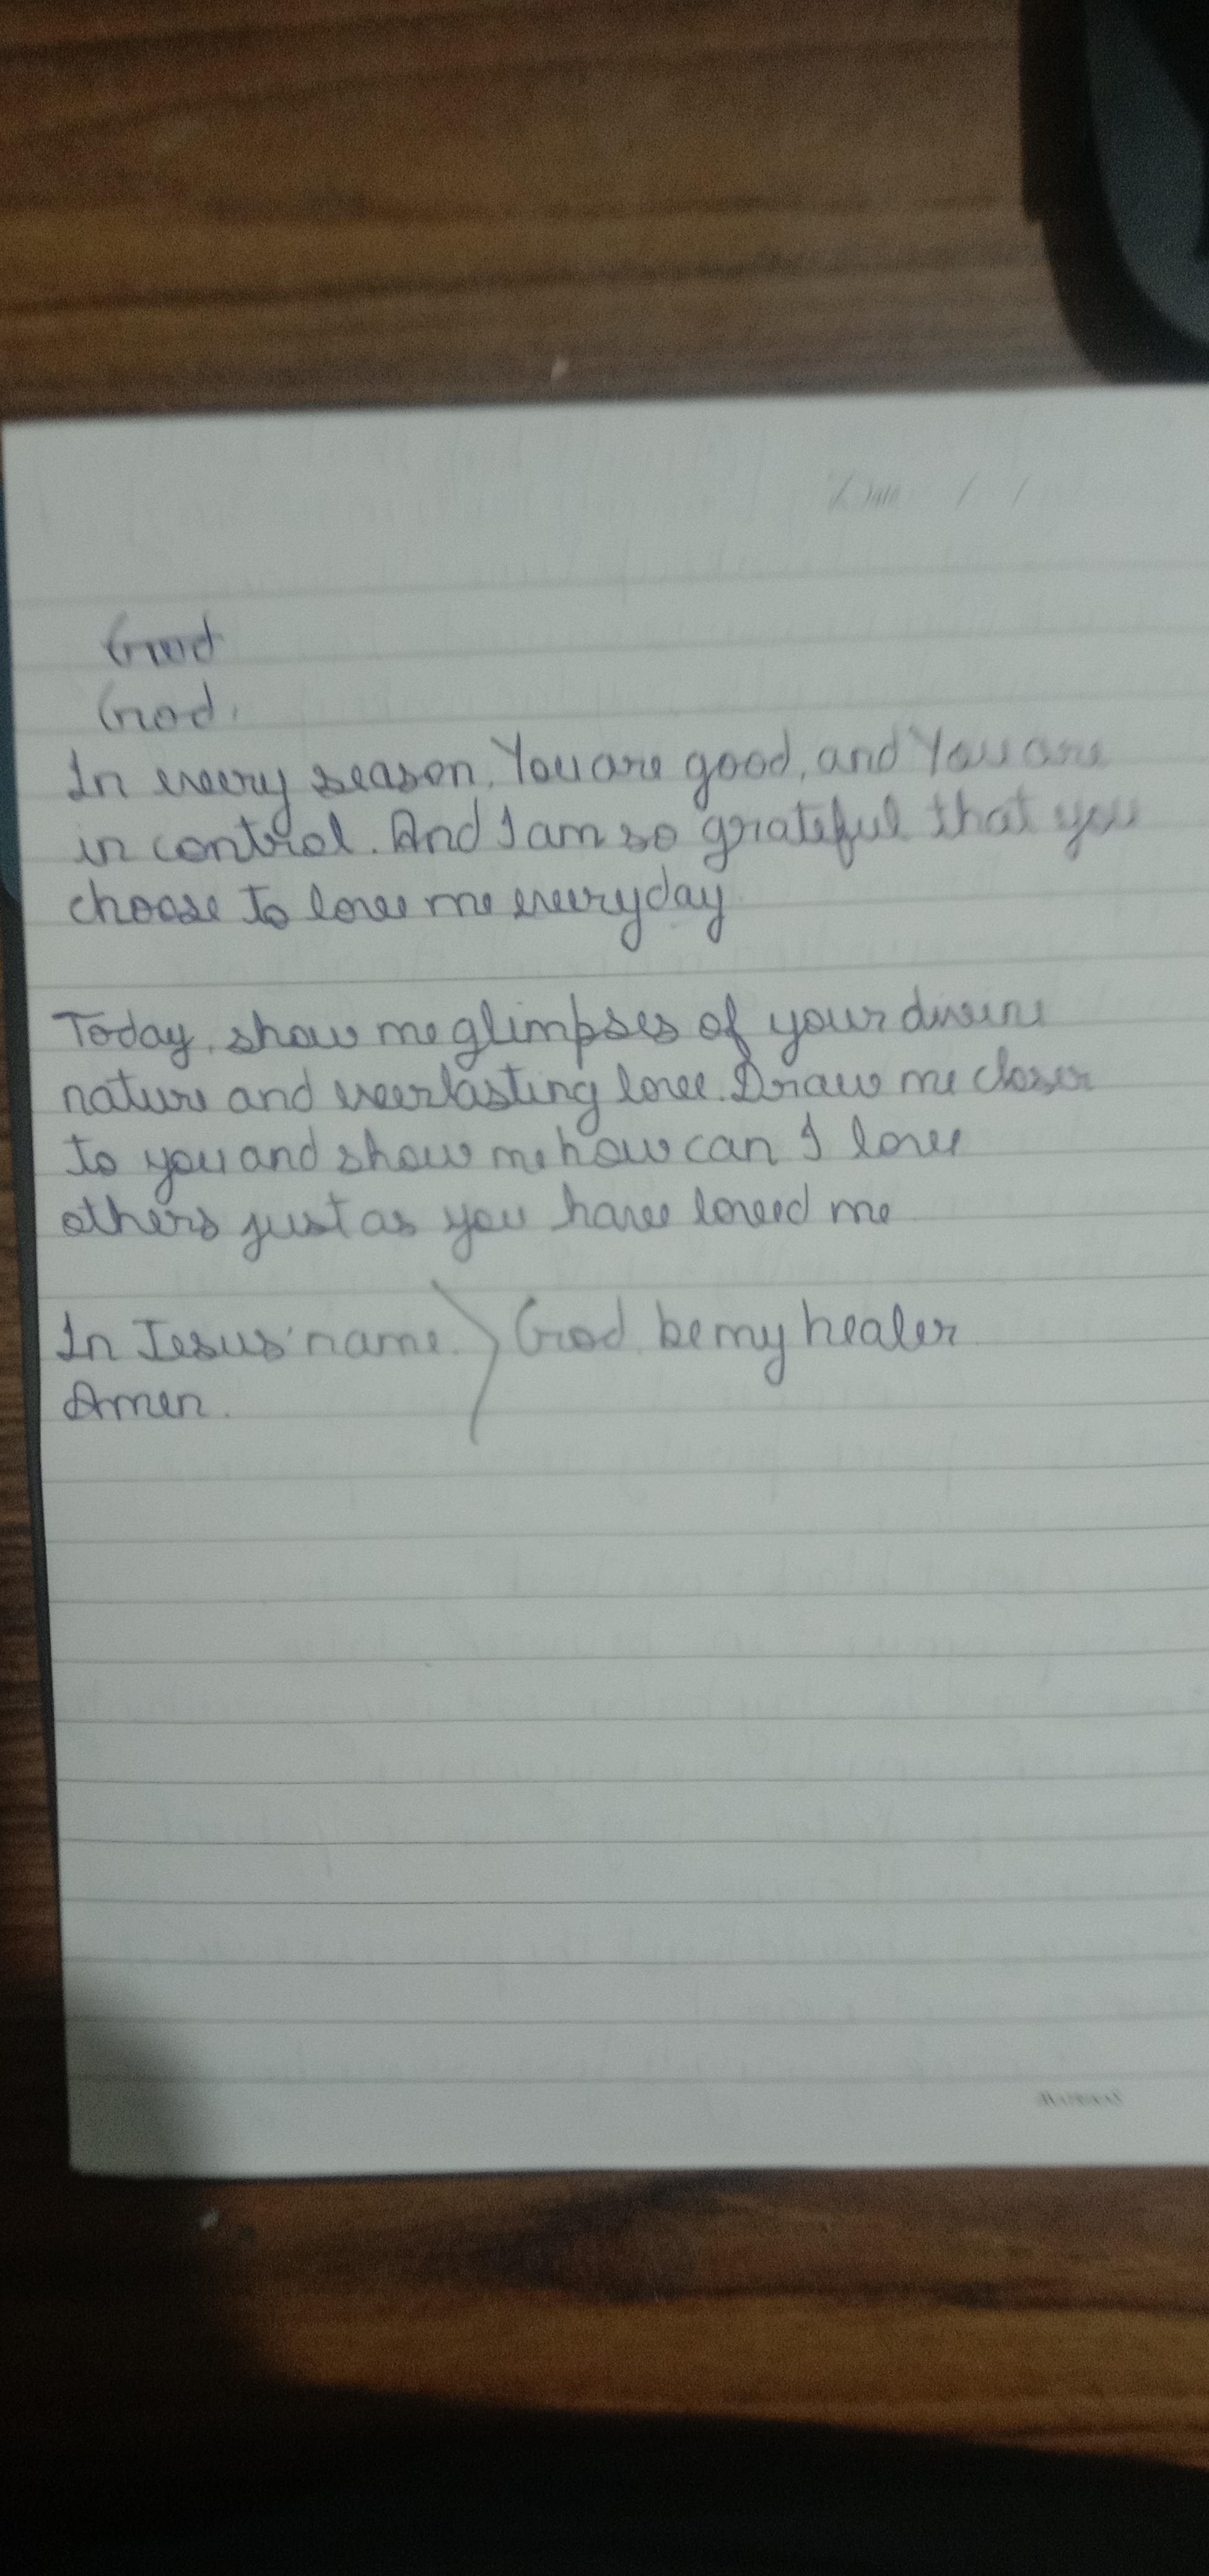 Date / /
God
God,
In every season, You are good, and You are
in control. And I am so grateful that you
choose to love me everyday
Today, show me glimpses of your divine
nature and everlasting love. Draw me closer
to you and show me how can I love
others just as you have loved me
In Jesus' name. } God, be my healer
Amen.